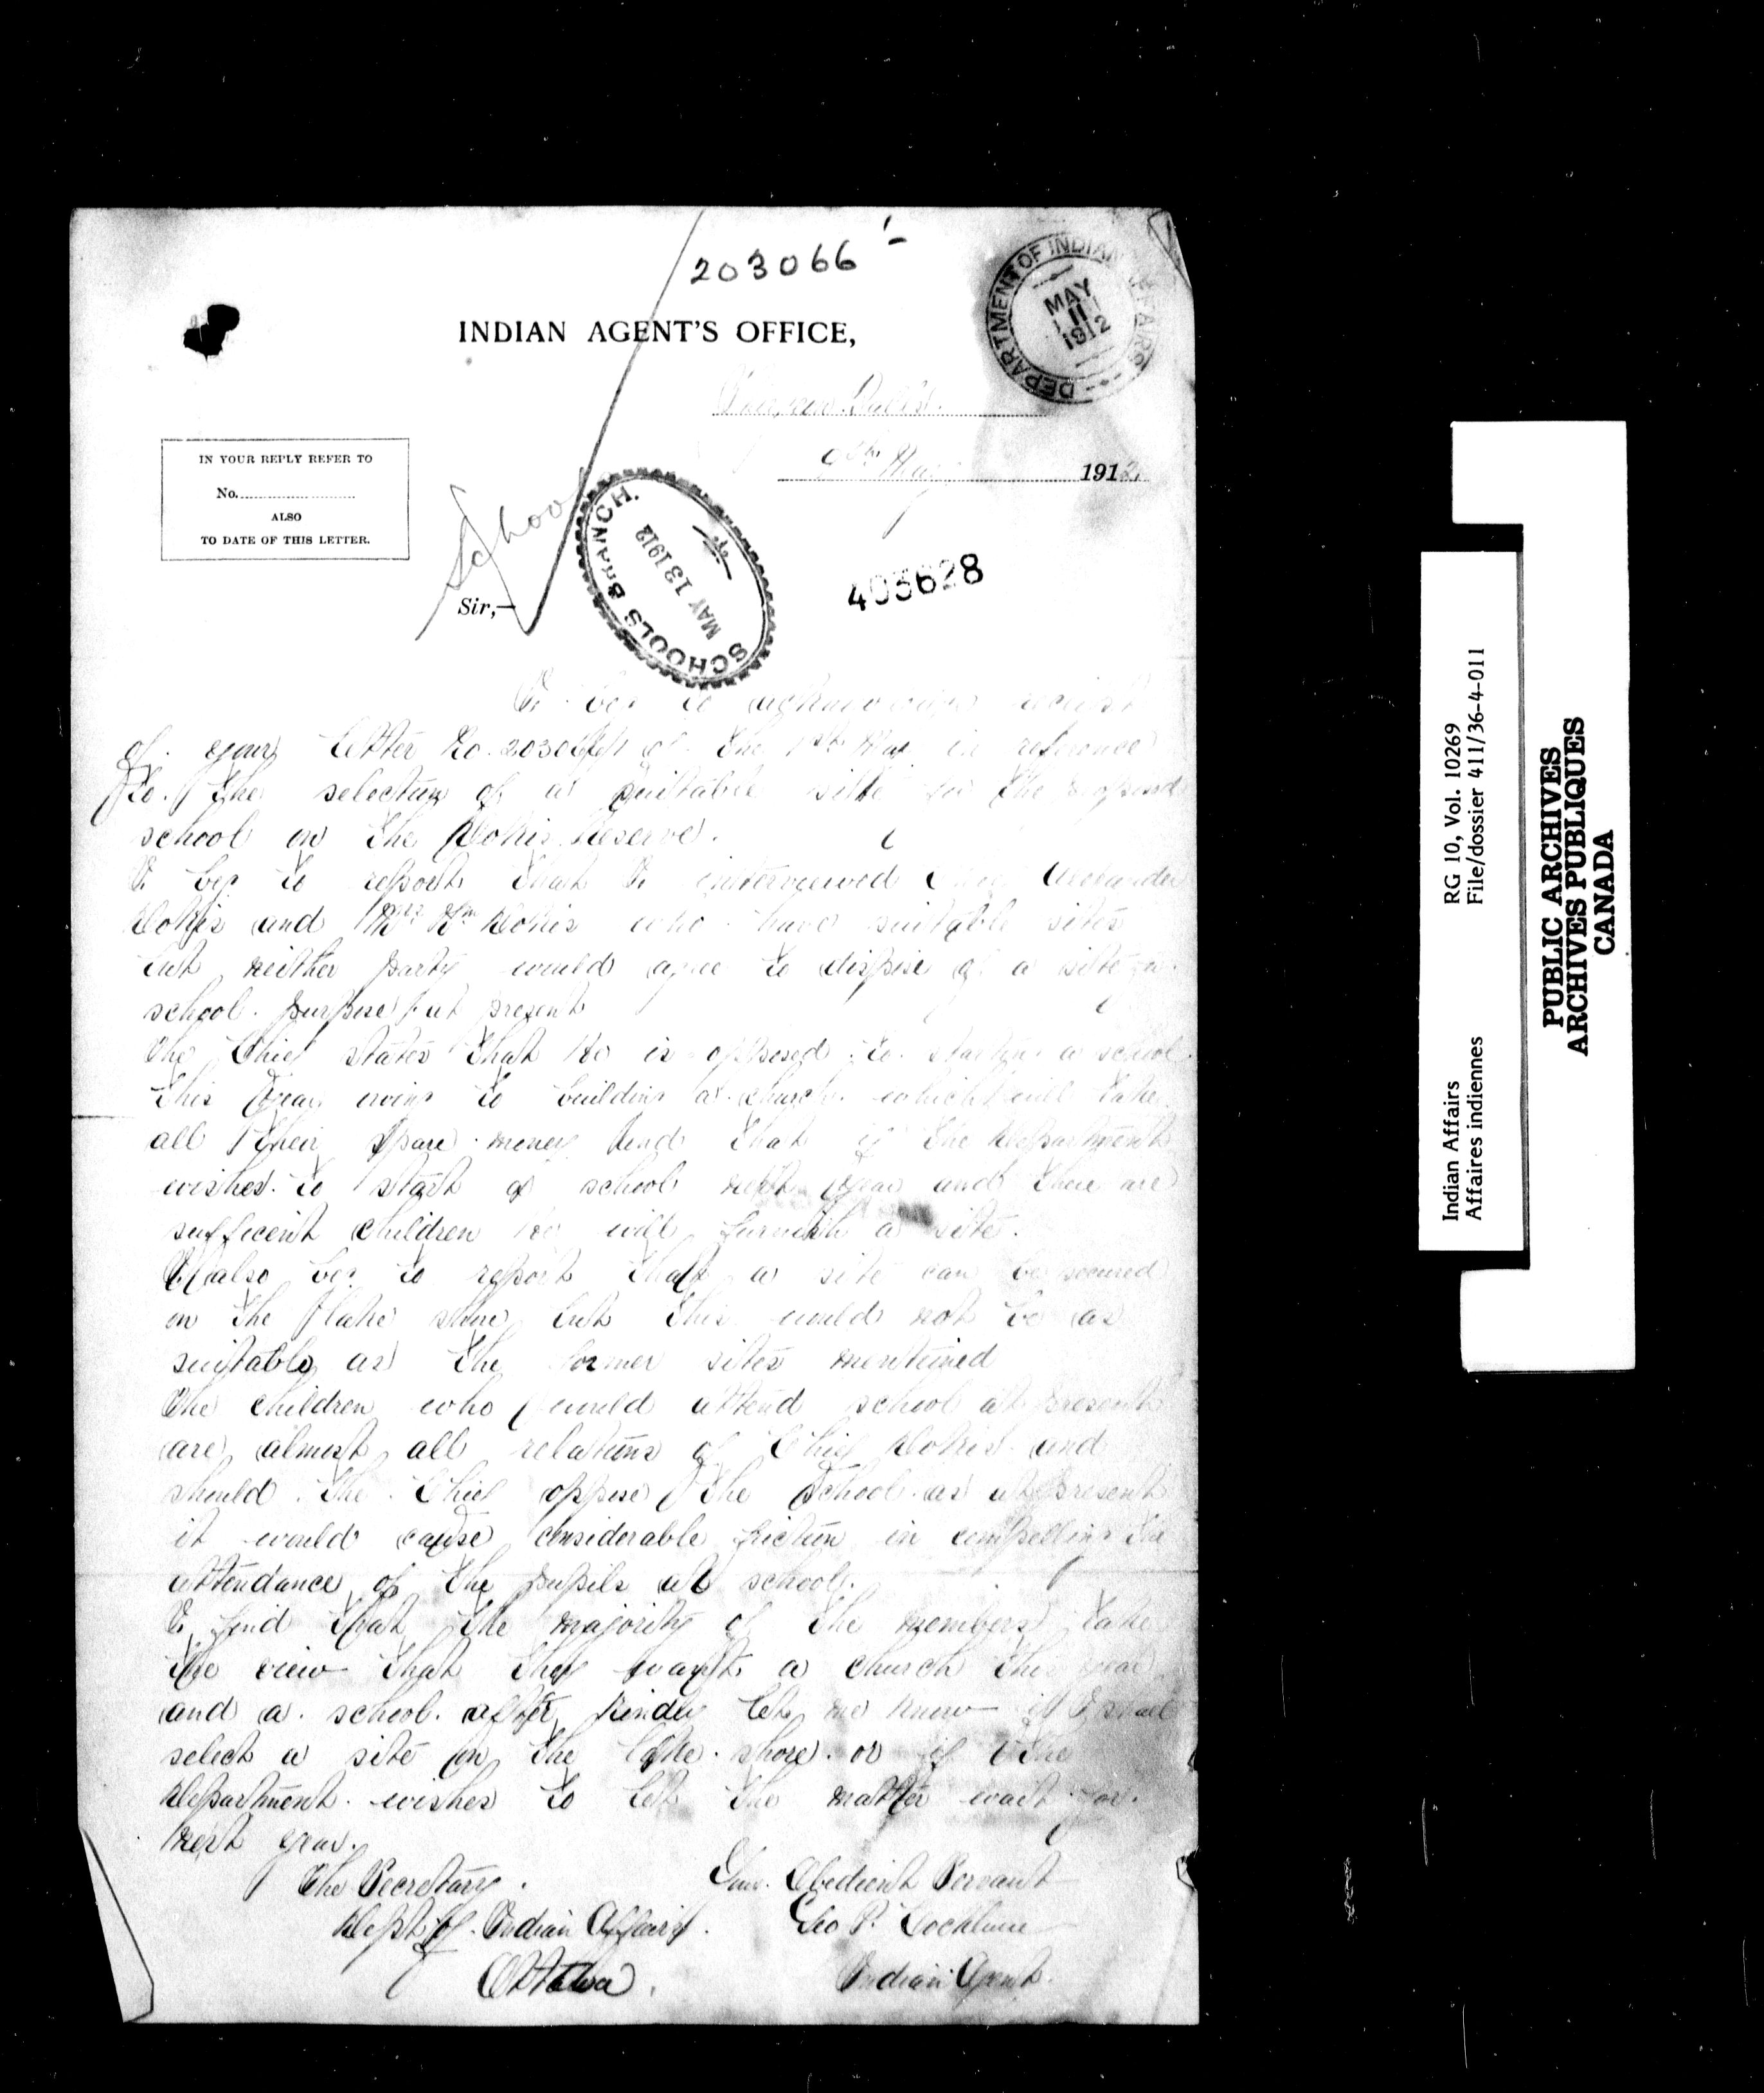 203066-1
INDIAN AGENT'S OFFICE,
DEPARTMENT OF INDIAN AFFAIRS
MAY 11 1912
Sturgeon Falls
May 1912
IN YOUR REPLY REFER TO
No.
ALSO
TO DATE OF THIS LETTER.
School
SCHOOLS BRANCH.
MAY 13 1912
403628
Sir,—
I beg to acknowledge receipt
of your letter No. 203066/1 of the 1st May in reference
to the selection of a suitable site for the proposed
school on the Dokis Reserve.
I beg to report that I interviewed Chief Alexander
Dokis and Mrs Wm Dokis who have suitable sites
but neither party would agree to dispose of a site for
school purpose at present
The Chief states that He is opposed to starting a school
this year owing to building a church which will take
all their spare money and that if the Department
wishes to start a school next year and there are
sufficent children He will furnish a site.
I also beg to report that a site can be secured
on the lake shore but this would not be as
suitable as the former sites mentioned
The children who would attend school at present
are almost all relations of Chief Dokis and
should the Chief oppose the School as at present
it would cause considerable friction in compelling the
attendance of the pupils at school.
I find that the majority of the members take
the view that they want a church this year
and a school after, kindly let me know if I shall
select a site on the lake shore or if the
Department wishes to let the matter wait for
next year.
The Secretary
Your Obedient Servant
Dept of Indian Affairs.
Geo P. Cockburn
Ottawa.
Indian Agent.
Indian Affairs
Affaires indiennes
RG 10, Vol. 10269
File/dossier 411/36-4-011
PUBLIC ARCHIVES
ARCHIVES PUBLIQUES
CANADA